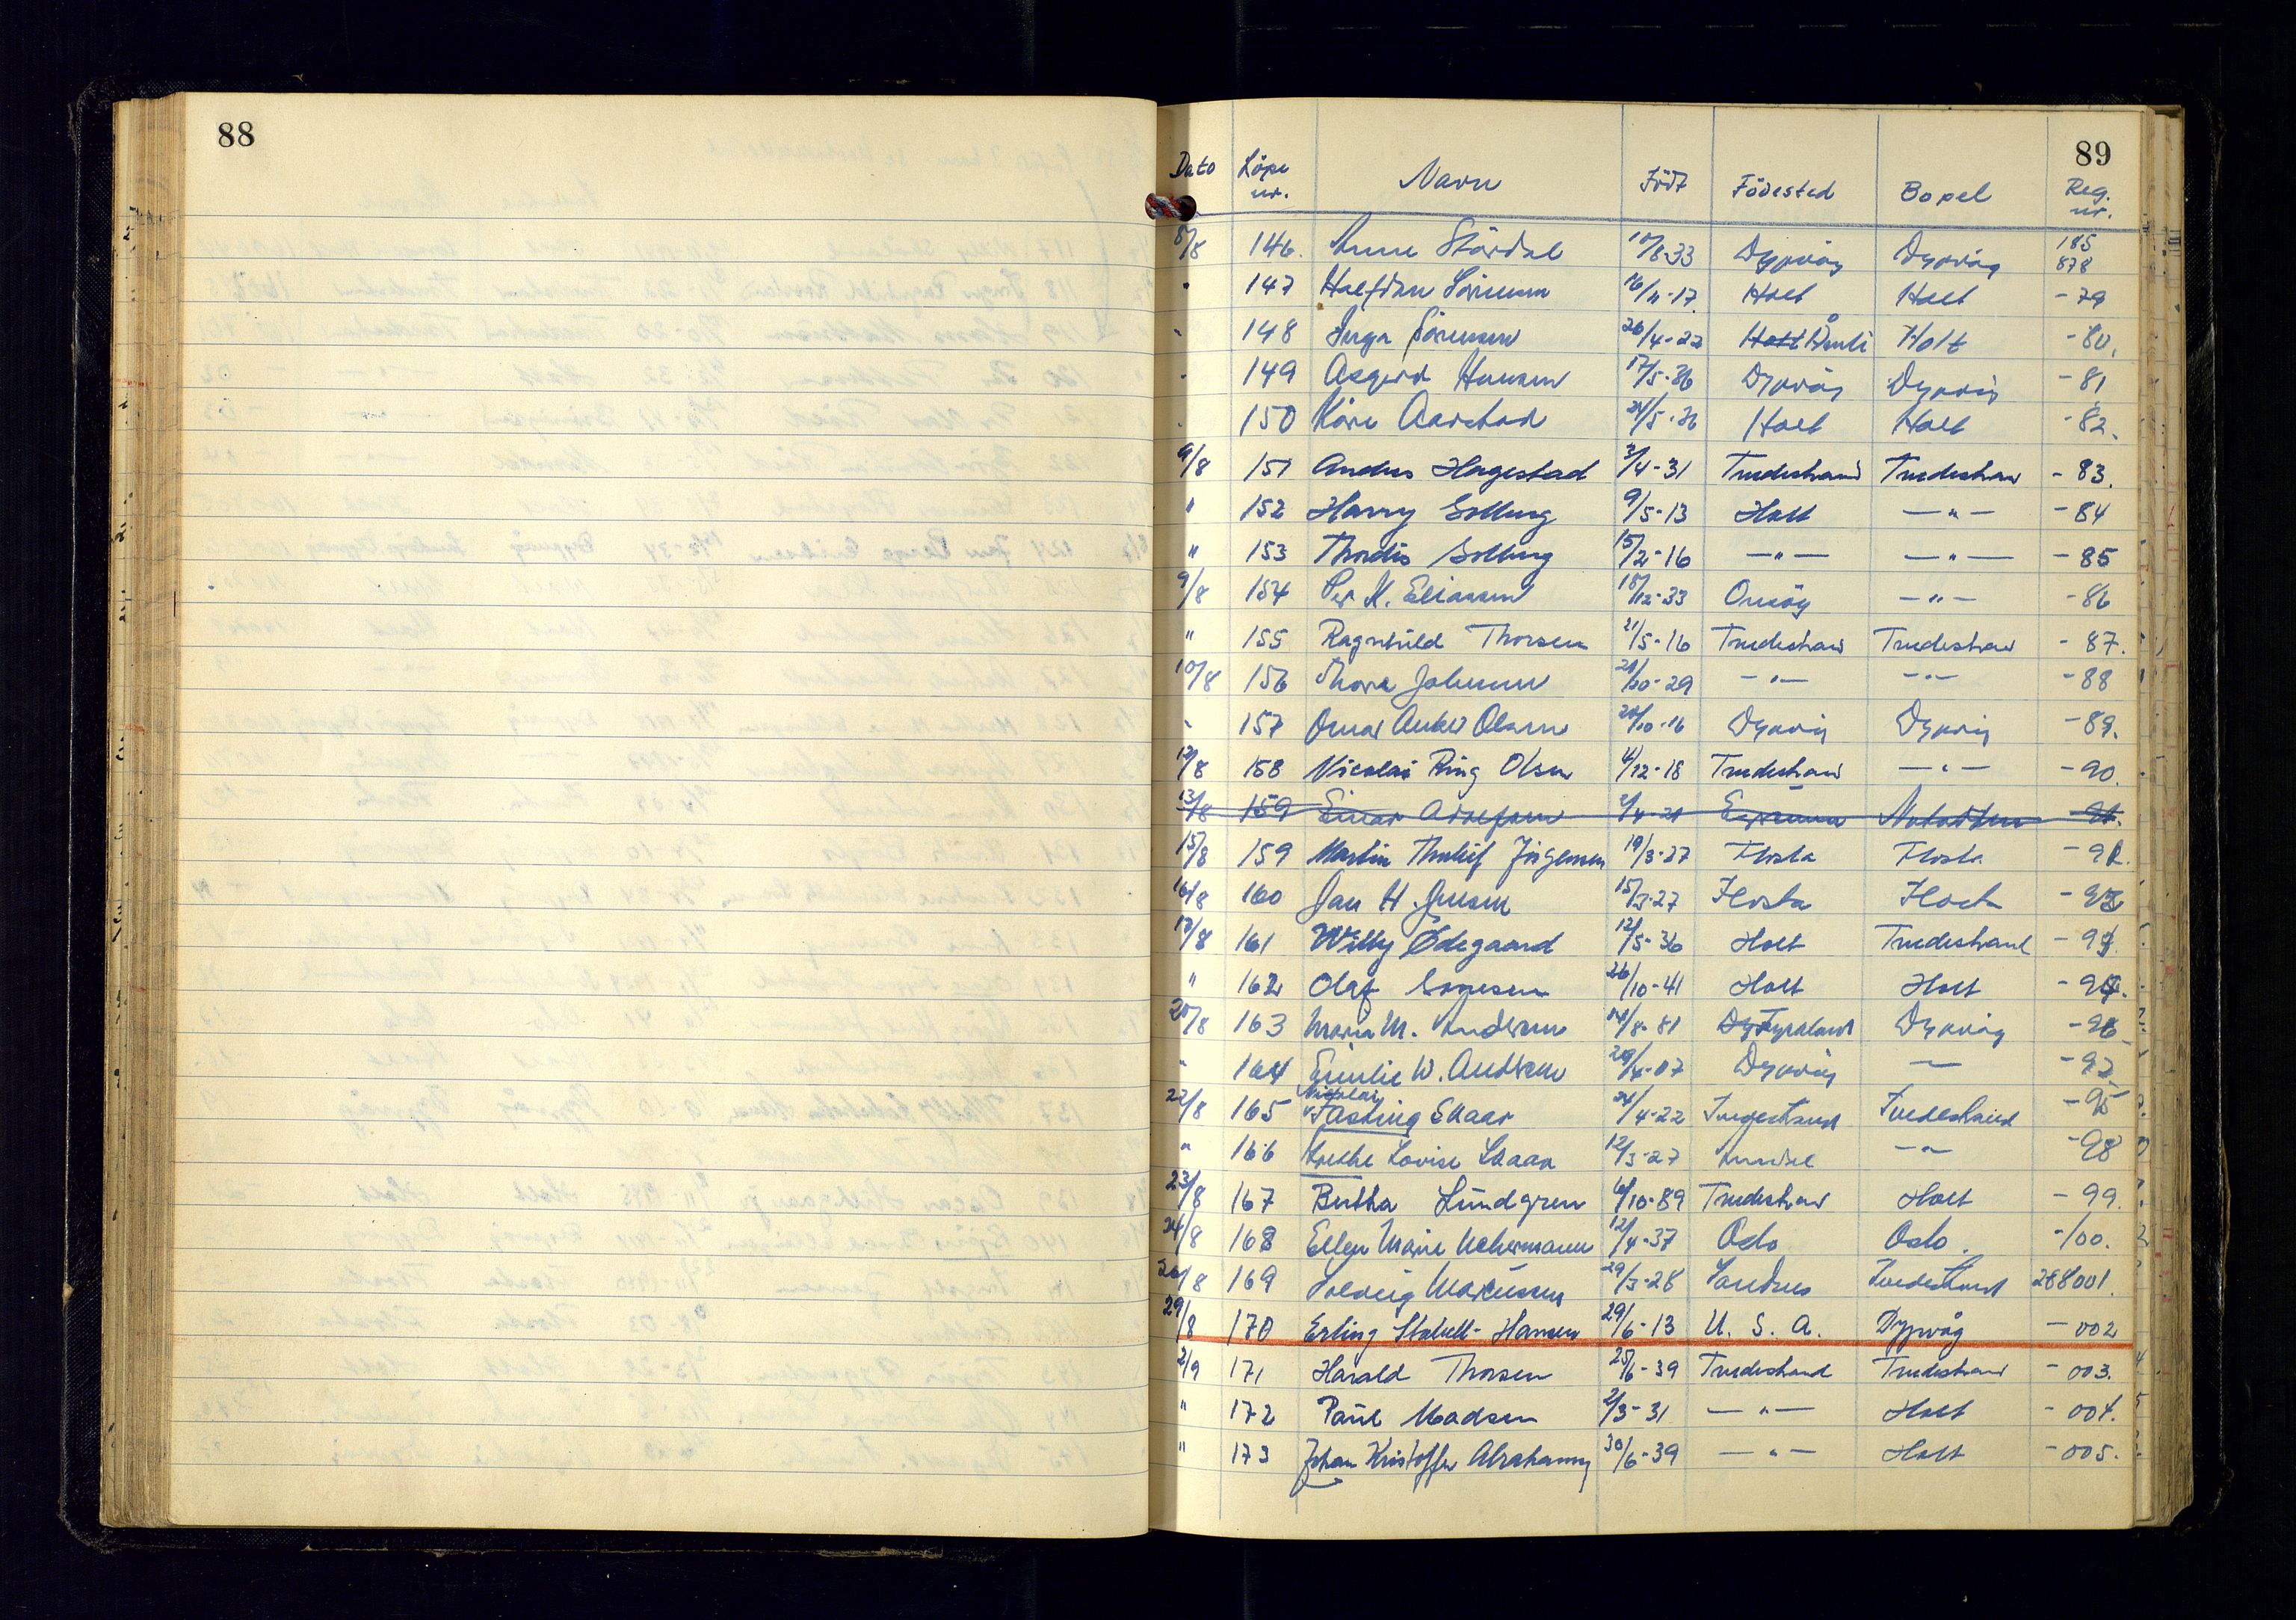 88
89
Dato Löpe nr. Navn Född Födested Bopel Reg. nr.
8/8 146. Anne Stärdal 10/8-33 Dypvåg Dypvåg 185878
" 147 Halfdan Sörensen 16/11-17. Holt Holt -79
" 148 Inga Sörensen 26/4-22 Holt Åmli Holt -80.
" 149 Asgerd Hansen 17/5-36 Dypvåg Dypvåg -81
" 150 Kåre Aarstad 24/5-36 Holt Holt -82.
9/8 151 Anders Hagestad 3/4-31 Tvedestrand Tvedestrand -83.
" 152 Harry Solberg 9/5-13 Holt —"— -84
" 153 Thordis Solberg 15/2-16 —"— —"— -85
9/8 154 Per K. Eliassen 18/12-33 Onsöy —"— -86
" 155 Ragnhild Thorsen 21/5-16 Tvedestrand Tvedestrand -87.
10/8 156 Thora Johnsen 29/10-29 —"— —"— -88
" 157 Omar Anker Olsen 20/10-16 Dypvåg Dypvåg -89.
12/8 158 Nicolai Ring Olsen 4/12-18 Tvedestrand —"— -90.
13/8 159 Einar Adolfsen 2/4-21 Notodden 91.
15/8 159 Martin Thorleif Jörgensen 19/3-27 Flosta Flosta
16/8 160 Jan H. Jensen 15/3-27 Flosta Flosta
17/8 161 Willy Ødegaard 12/5-36 Holt Tvedestrand
" 162 Olaf 26/10-41 Holt Holt
20/8 163 Maria M. Andersen 14/8-81 Dypvåg -96
" 164 Emilie W. Andersen 29/4-07 Dypvåg — -97
22/8 165 Nicolai Fasting Skaar 24/4-22 Tvedestrand Tvedestrand -95
" 166 Grethe Lovise Skaar 12/3-27 Arendal —"— -98
23/8 167 Bertha Lundgren 6/10-89 Tvedestrand Holt -99.
24/8 168 Ellen Marie Uchermann 12/4-37 Oslo Oslo. -100.
26/8 169 Solveig Marcussen 29/3-28 Sandnes Tvedestrand 288001.
29/8 170 Erling Stabell-Hansen 29/6-13 U. S. A. Dypvåg -002
2/9 171 Harald Thorsen 25/6-39 Tvedestrand Tvedestrand -003.
" 172 Paul Madsen 2/3-31 —"— Holt -004.
" 173 Johan Kristoffer Abrahamsen 30/6-39 —"— Holt -005.